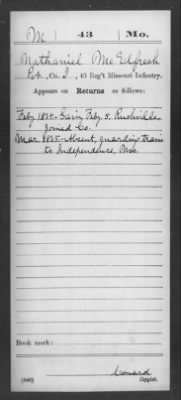 M | 43 | Mo.
Nathaniel McElfresh
Pvt., Co. I, 43 Reg't Missouri Infantry.
Appears on Returns as follows:
Feby 1865. Gain Feby 5, Rushville
Joined Co.
Mar 1865. Absent, guarding train
to Independence, Mo.
Book mark:
(546)
Conard
Copyist.